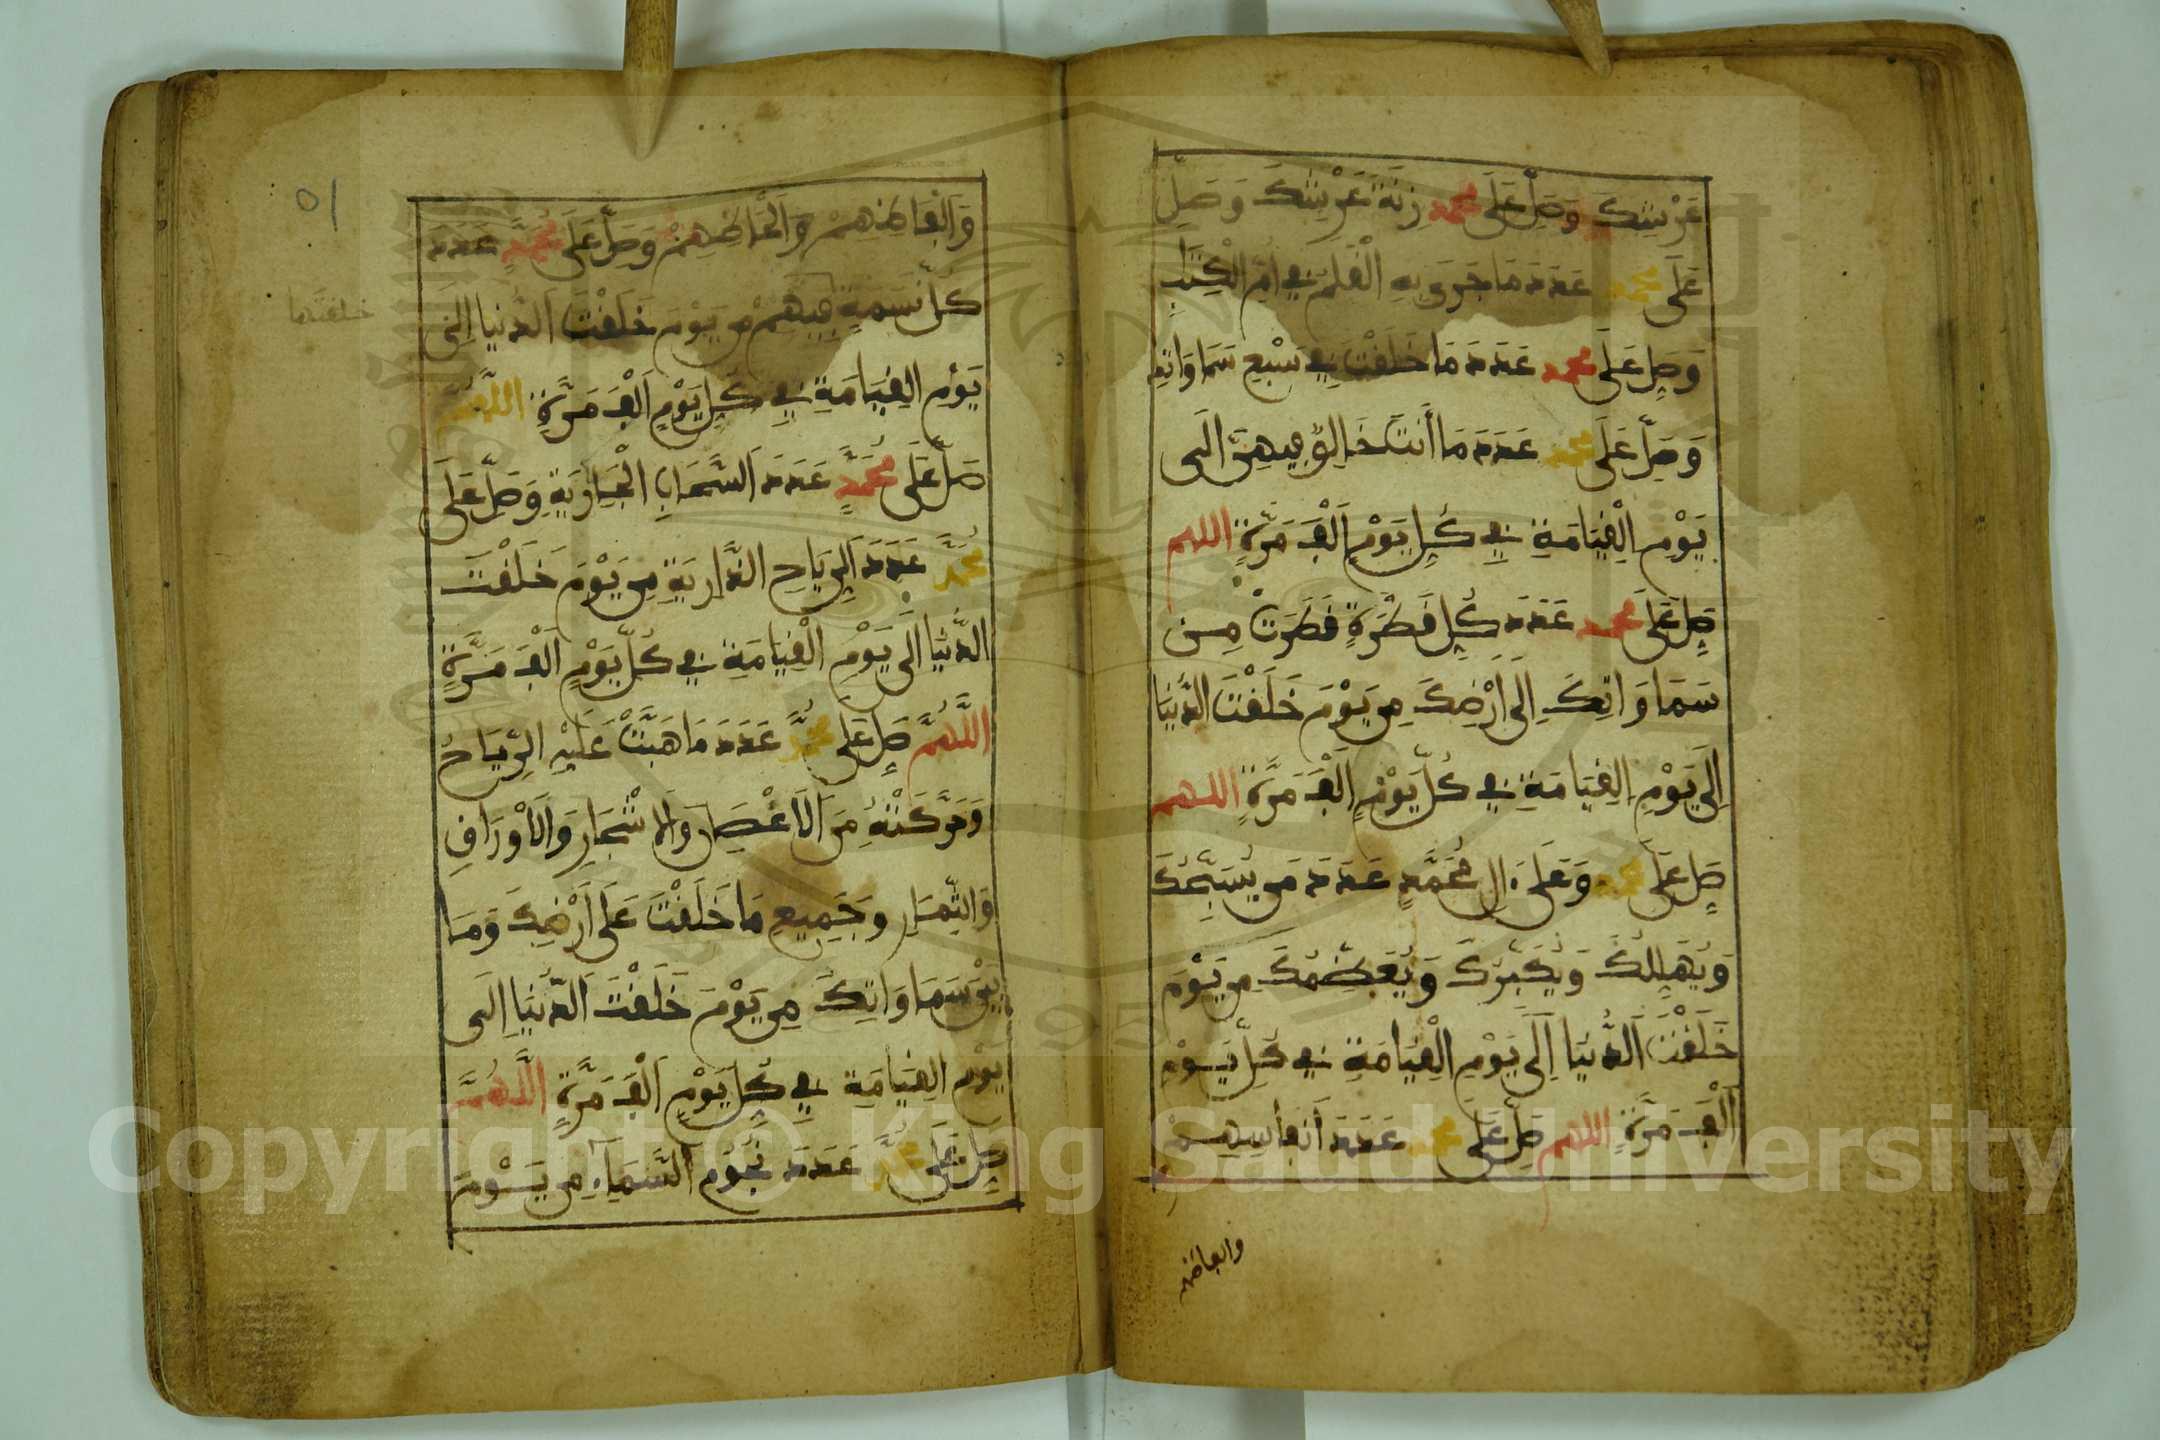 عَرْشِكَ وَصَلِّ عَلَى محمد زِنَةَ عَرْشِكَ وَصَلِّ
عَلَى محمد عَدَدَ مَا جَرَى بِهِ الْقَلَمُ فِي أُمِّ الْكِتَابِ
وَصَلِّ عَلَى محمد عَدَدَ مَا خَلَقْتَ فِي سَبْعِ سَمَاوَاتِكَ
وَصَلِّ عَلَى محمد عَدَدَ مَا أَنْتَ خَالِقٌ فِيهِنَّ إلَى
يَوْمِ الْقِيَامَةِ فِي كُلِّ يَوْمٍ أَلْفَ مَرَّةٍ اللهم
صَلِّ عَلَى محمد عَدَدَ كُلِّ قَطْرَةٍ قَطَرَتْ مِن
سَمَاوَاتِكَ إِلَى أَرْضِكَ مِن يَوْمَ خَلَقْتَ الدُّنْيَا
إِلَى يَوْمِ الْقِيَامَةِ فِي كُلِّ يَوْمٍ أَلْفَ مَرَّةٍ اللهم
صَلِّ عَلَى محمد وَعَلَى ءَالِ مُحَمَّدٍ عَدَدَ مَن يُسَبِّحُكَ
وَيُهَلِّلُكَ وَيُكَبِّرُكَ وَيُعَظِّمُكَ مِن يَوْمَ
خَلَقْتَ الدُّنْيَا إِلَى يَوْمِ الْقِيَامَةِ فِي كُلِّ يَوْمٍ
أَلْفَ مَرَّةٍ اللهم صَلِّ عَلَى محمد عَدَدَ أَنْفَاسِهِمْ
والفاظهم
وَأَلْفَاظِهِمْ وَأَلْحَاظِهِمْ وَصَلِّ عَلَى مُحَمَّدٍ عَدَدَ
كُلِّ نَسَمَةٍ فِيهِمْ مِن يَوْمَ خَلَقْتَ الدُّنْيَا إِلَى
خلقتها
يَوْمِ الْقِيَامَةِ فِي كُلِّ يَوْمٍ أَلْفَ مَرَّةٍ اللَّهُمَّ
صَلِّ عَلَى مُحَمَّدٍ عَدَدَ السَّحَابِ الْجَارِيَةِ وَصَلِّ عَلَى
مُحَمَّدٍ عَدَدَ الرِّيَاحِ الذَّارِيَةِ مِن يَوْمَ خَلَقْتَ
الدُّنْيَا إِلَى يَوْمِ الْقِيَامَةِ فِي كُلِّ يَوْمٍ أَلْفَ مَرَّةٍ
اللَّهُمَّ صَلِّ عَلَى مُحَمَّدٍ عَدَدَ مَا هَبَّتْ عَلَيْهِ الرِّيَاحُ
وَحَرَّكَتْهُ مِنَ الْأَغْصَانِ وَالْأَشْجَارِ وَالْأَوْرَاقِ
وَالثِّمَارِ وَجَمِيعِ مَا خَلَقْتَ عَلَى أَرْضِكَ وَمَا
بَيْنَ سَمَاوَاتِكَ مِن يَوْمَ خَلَقْتَ الدُّنْيَا إِلَى
يَوْمِ الْقِيَامَةِ فِي كُلِّ يَوْمٍ أَلْفَ مَرَّةٍ اللَّهُمَّ
صَلِّ عَلَى مُحَمَّدٍ عَدَدَ نُجُومِ السَّمَاءِ مِن يَوْمَ
Copyright © King Saud University